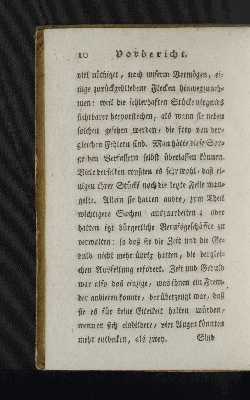 10 Vorbericht.
viel nöthiger, noch unserm Vermögen, ei-
nige zurückgebliebene Flecken hinwegzuneh-
men: weil die fehlerhaften Stücke nirgends
sichtbarer hervorstechen, als wann sie neben
solchen gesehen werden, die frey von der-
gleichen Fehlern sind. Man hätte diese Sor-
ge den Verfassern selbst überlassen können.
Viele derselben wußten es sehr wohl, daß ei-
nigen ihrer Stücke noch die letzte Feile man-
gelte. Allein sie hatten andre, zum Theil
wichtigere Sachen auszuarbeiten; oder
hatten itzt bürgerliche Berufsgeschäffte zu
verwalten: so daß sie die Zeit und die Ge-
duld nicht mehr übrig hatten, die derglei-
chen Ausfeilung erfodert. Zeit und Geduld
war also das einzige, was ihnen ein Frem-
der anbieten konnte, der überzeugt war, daß
sie es für keine Eitelkeit halten würden,
wenn er sich einbildete, vier Augen könnten
mehr entdecken, als zwey.
Sind